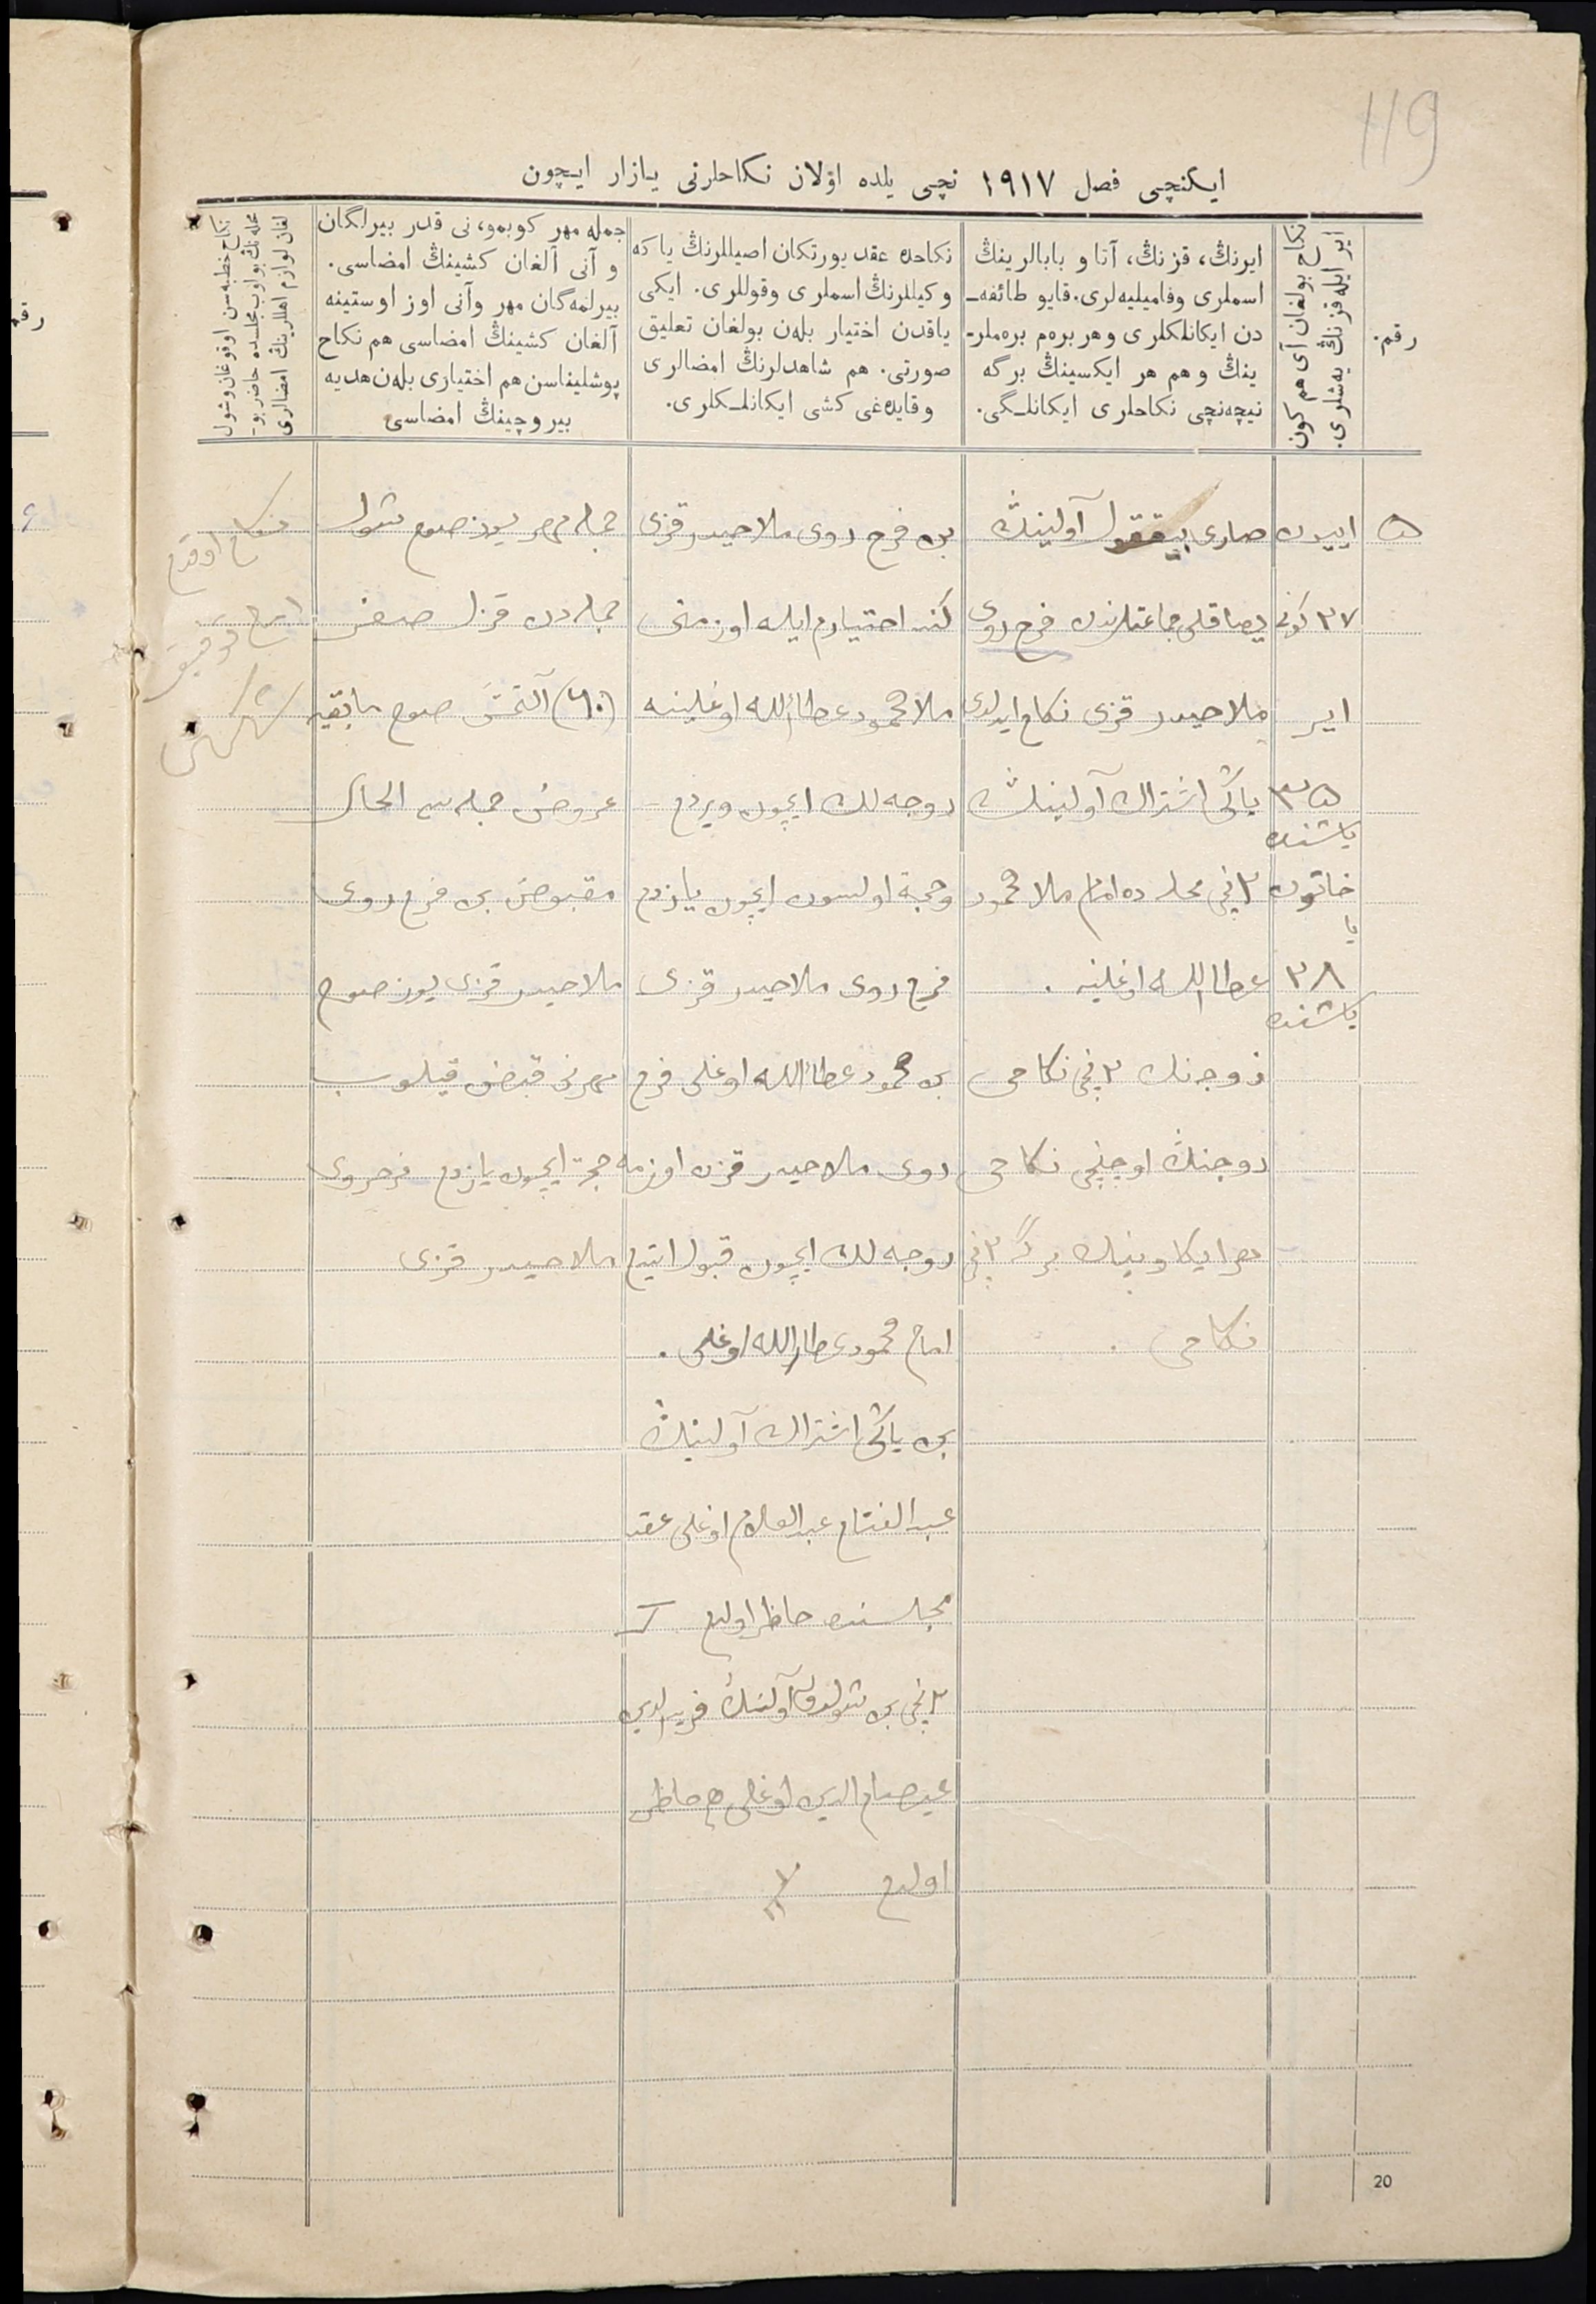 119
ایکنچی فصل ١٩١٧ نچی یلده اؤلان نکاحلرنی یازار ایچون
رقم.
نکاح بولغان آی هم کون
ایر ایله قزنڭ یه‌شلری.
ایرنڭ، قزنڭ، آتا و بابالرینڭ
اسملری وفامیلیه‌لری. قایو طائفه‌ـ
دن ایکانلکلری و هر بره‌م بره‌ملرـ
ینڭ و هم هر ایکسینڭ برگه
نیچه‌نچی نکاحلری ایکانلـگی.
نکاحده عقد یورتکان اصیللرنڭ یا که
وکیللرنڭ اسملری وقوللری. ایکی
یاقدن اختیار بله‌ن بولغان تعلیق
صورتی. هم شاهدلرنڭ امضالری
وقایده‌غی کشی ایکانلـکلری.
جمله مهر کوبمو، نی قدر بیرلگان
و آنی آلغان کشینڭ امضاسی.
بیرلمه‌گان مهر وآنی اوز اوستینه
آلغان کشینڭ امضاسی هم نکاح
پوشلیناسن هم اختیاری بله‌ن هدیه
بیروچینڭ امضاسی
نکاح خطبه‌سن اوقوغان وشول
محله‌نڭ بولوب مجلسده حاضر بوـ
لغان لوازم اهللرینڭ امضالری
۵
اییون
٢٧ کونی
ایر
٣۵
یاشنده
خاتون
٢٨
یاشنده
صاری بیققول آولینڭ
جماعتلرندن فرح روی
ملا حیدر قزی نکاح ایدلدی
یاڭی اشتراك آولینڭ
٢نچی محله ده امام ملا محمود
عطاالله اوغلینه .
زوجنك ٢نچی نکاحی
زوجنڭ اوچنچی نکاحی
هر ایکاوینك برگه ٢نچی
نکاحی .
بن فرح روی ملا حیدر قزی
اختیارم ایله اوزمنی
ملا محمود عطاءالله اوغلینه
زوجه لك ایچون ویردم
وحجة اولسون ایچون یازدم
فرح روی ملا حیدر قزی
بن محمود عطاءالله اوغلی فرح
روی ملا حیدر قزن اوزمه
زوجه لك ایچون قبول ایتدم
امام محمود عطاءالله اوغلی .
بن یاڭی اشتراك آولینڭ
عبدالفتاح عبدالعلام اوغلی عقد
مجلسنده حاظر اولدم
٢نچی بن آولینڭ
اوغلی هم حاظر
اولدم
جمله مهر یوز صوم شول
جمله دن قزل
(٦٠) آلتمش صوم مابقیه
الحال
مقبوض بن فرح روی
ملا حیدر قزی یوز صوم
مهرنی قبض قیلوب
حجة ایچون یازدم فرحروی
ملا حیدر قزی
نکاح اوقدم
20